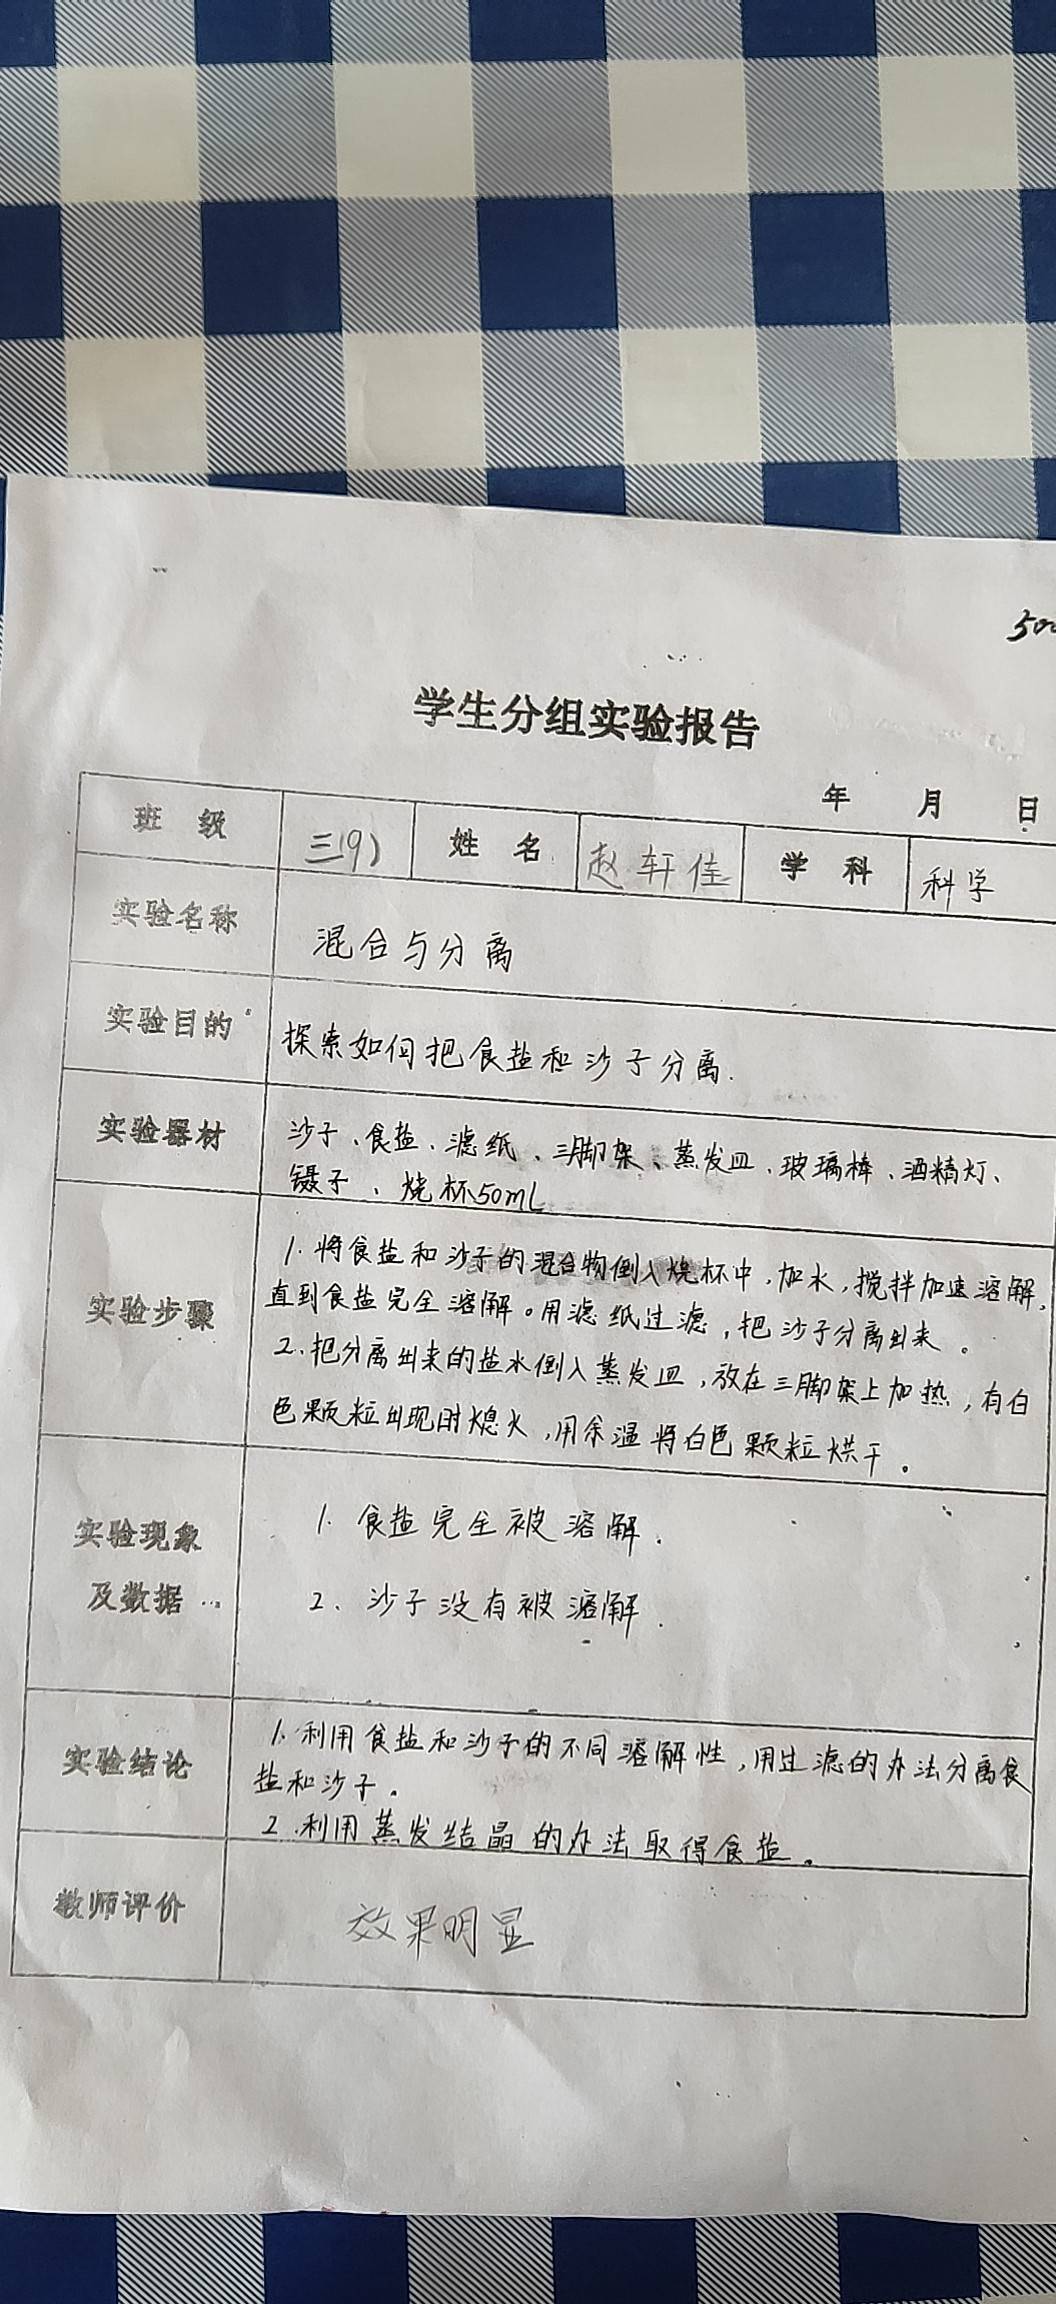 学生分组实验报告
年 月 日
班 级 三(9) 姓 名 赵轩佳 学 科 科学
实验名称 混合与分离
实验目的 探索如何把食盐和沙子分离.
实验器材 沙子、食盐、滤纸、三脚架、蒸发皿、玻璃棒、酒精灯、
镊子、烧杯50mL
实验步骤
1.将食盐和沙子的混合物倒入烧杯中,加水,搅拌加速溶解,
直到食盐完全溶解。用滤纸过滤,把沙子分离出来。
2.把分离出来的盐水倒入蒸发皿,放在三脚架上加热,有白
色颗粒出现时熄火,用余温将白色颗粒烘干。
实验现象
及数据
1. 食盐完全被溶解.
2、沙子没有被溶解.
实验结论
1.利用食盐和沙子的不同溶解性,用过滤的办法分离食
盐和沙子。
2.利用蒸发结晶的办法取得食盐。
教师评价 效果明显